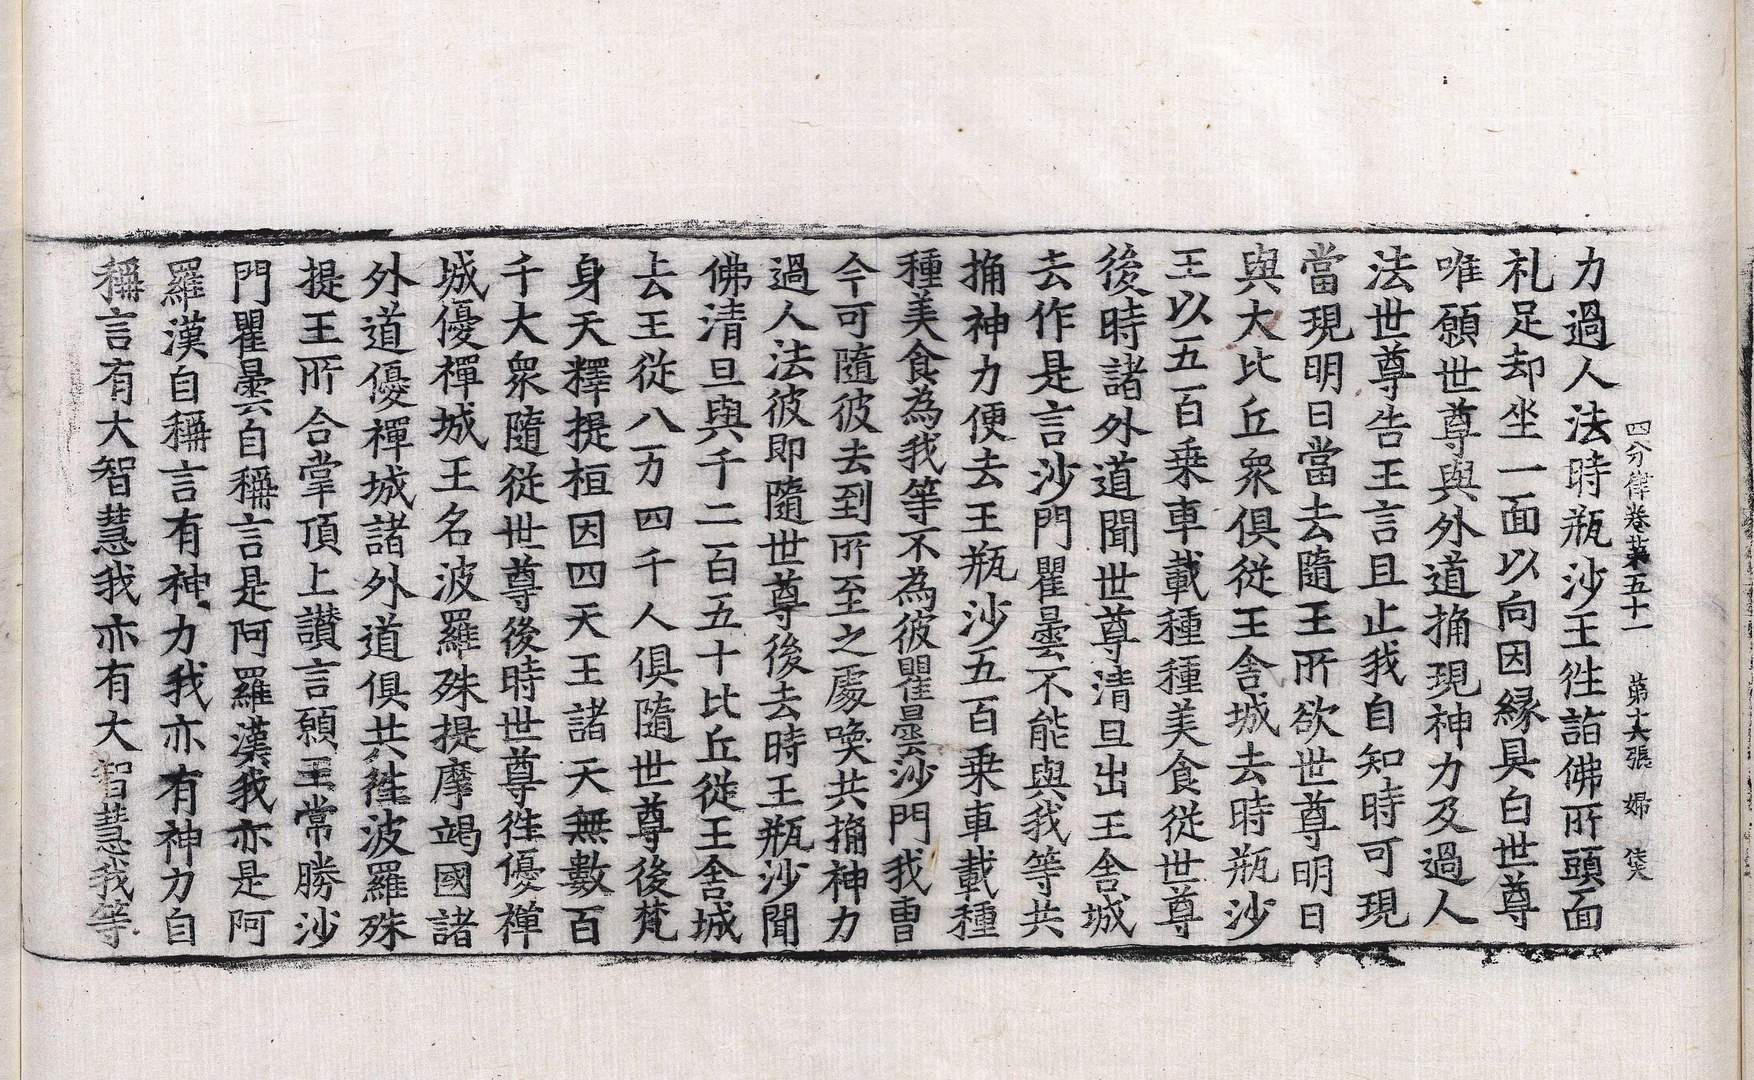 四分律卷第五十一 第六張 婦
力過人法時瓶沙王徃詣佛所頭面
礼足却坐一面以向因縁具白世尊
唯願世尊與外道捔現神力及過人
法世尊告王言且止我自知時可現
當現明日當去隨王所欲世尊明日
與大比丘衆俱從王舍城去時瓶沙
王以五百乗車載種種美食從世尊
後時諸外道聞世尊清旦出王舍城
去作是言沙門瞿曇不能與我等共
捔神力便去王瓶沙五百乗車載種
種美食為我等不為彼瞿曇沙門我曺
今可隨彼去到所至之處喚共捔神力
過人法彼即隨世尊後去時王瓶沙聞
佛清旦與千二百五十比丘從王舍城
去王從八万四千人俱隨世尊後梵
身天釋提桓因四天王諸天無數百
千大衆隨從世尊後時世尊徃優禪
城優禪城王名波羅殊提摩竭國諸
外道優禪城諸外道俱共徃波羅殊
提王所合掌頂上讃言願王常勝沙
門瞿曇自稱言是阿羅漢我亦是阿
羅漢自稱言有神力我亦有神力自
稱言有大智慧我亦有大智慧我等